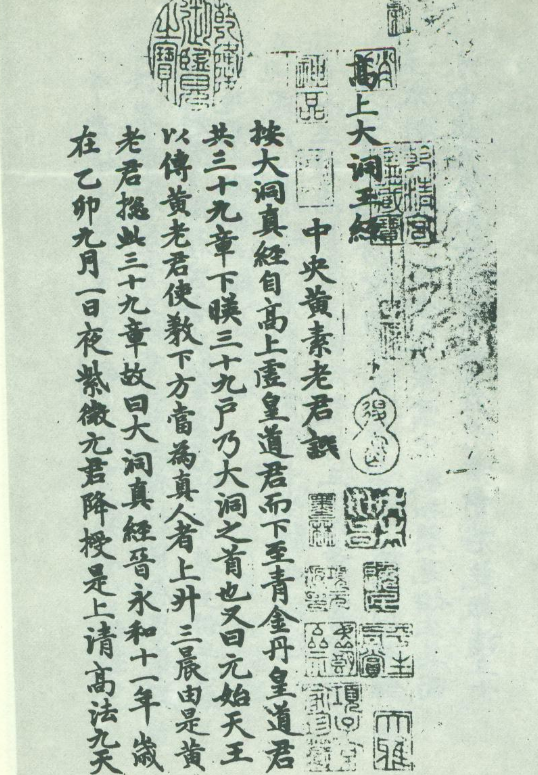 髙上大洞玉經
神品
墨林
中央黄素老君譔
乾隆御覽之寶
按大洞真經自髙上虛皇道君而下至青金丹皇道君
共三十九章下暎三十九戶乃大洞之首也又曰元始天王
以傳黄老君使教下方當為真人者上升三晨由是黄
老君揔此三十九章故曰大洞真經晉永和十一年歲
在乙卯九月一日夜紫微元君降授是上清髙法九天